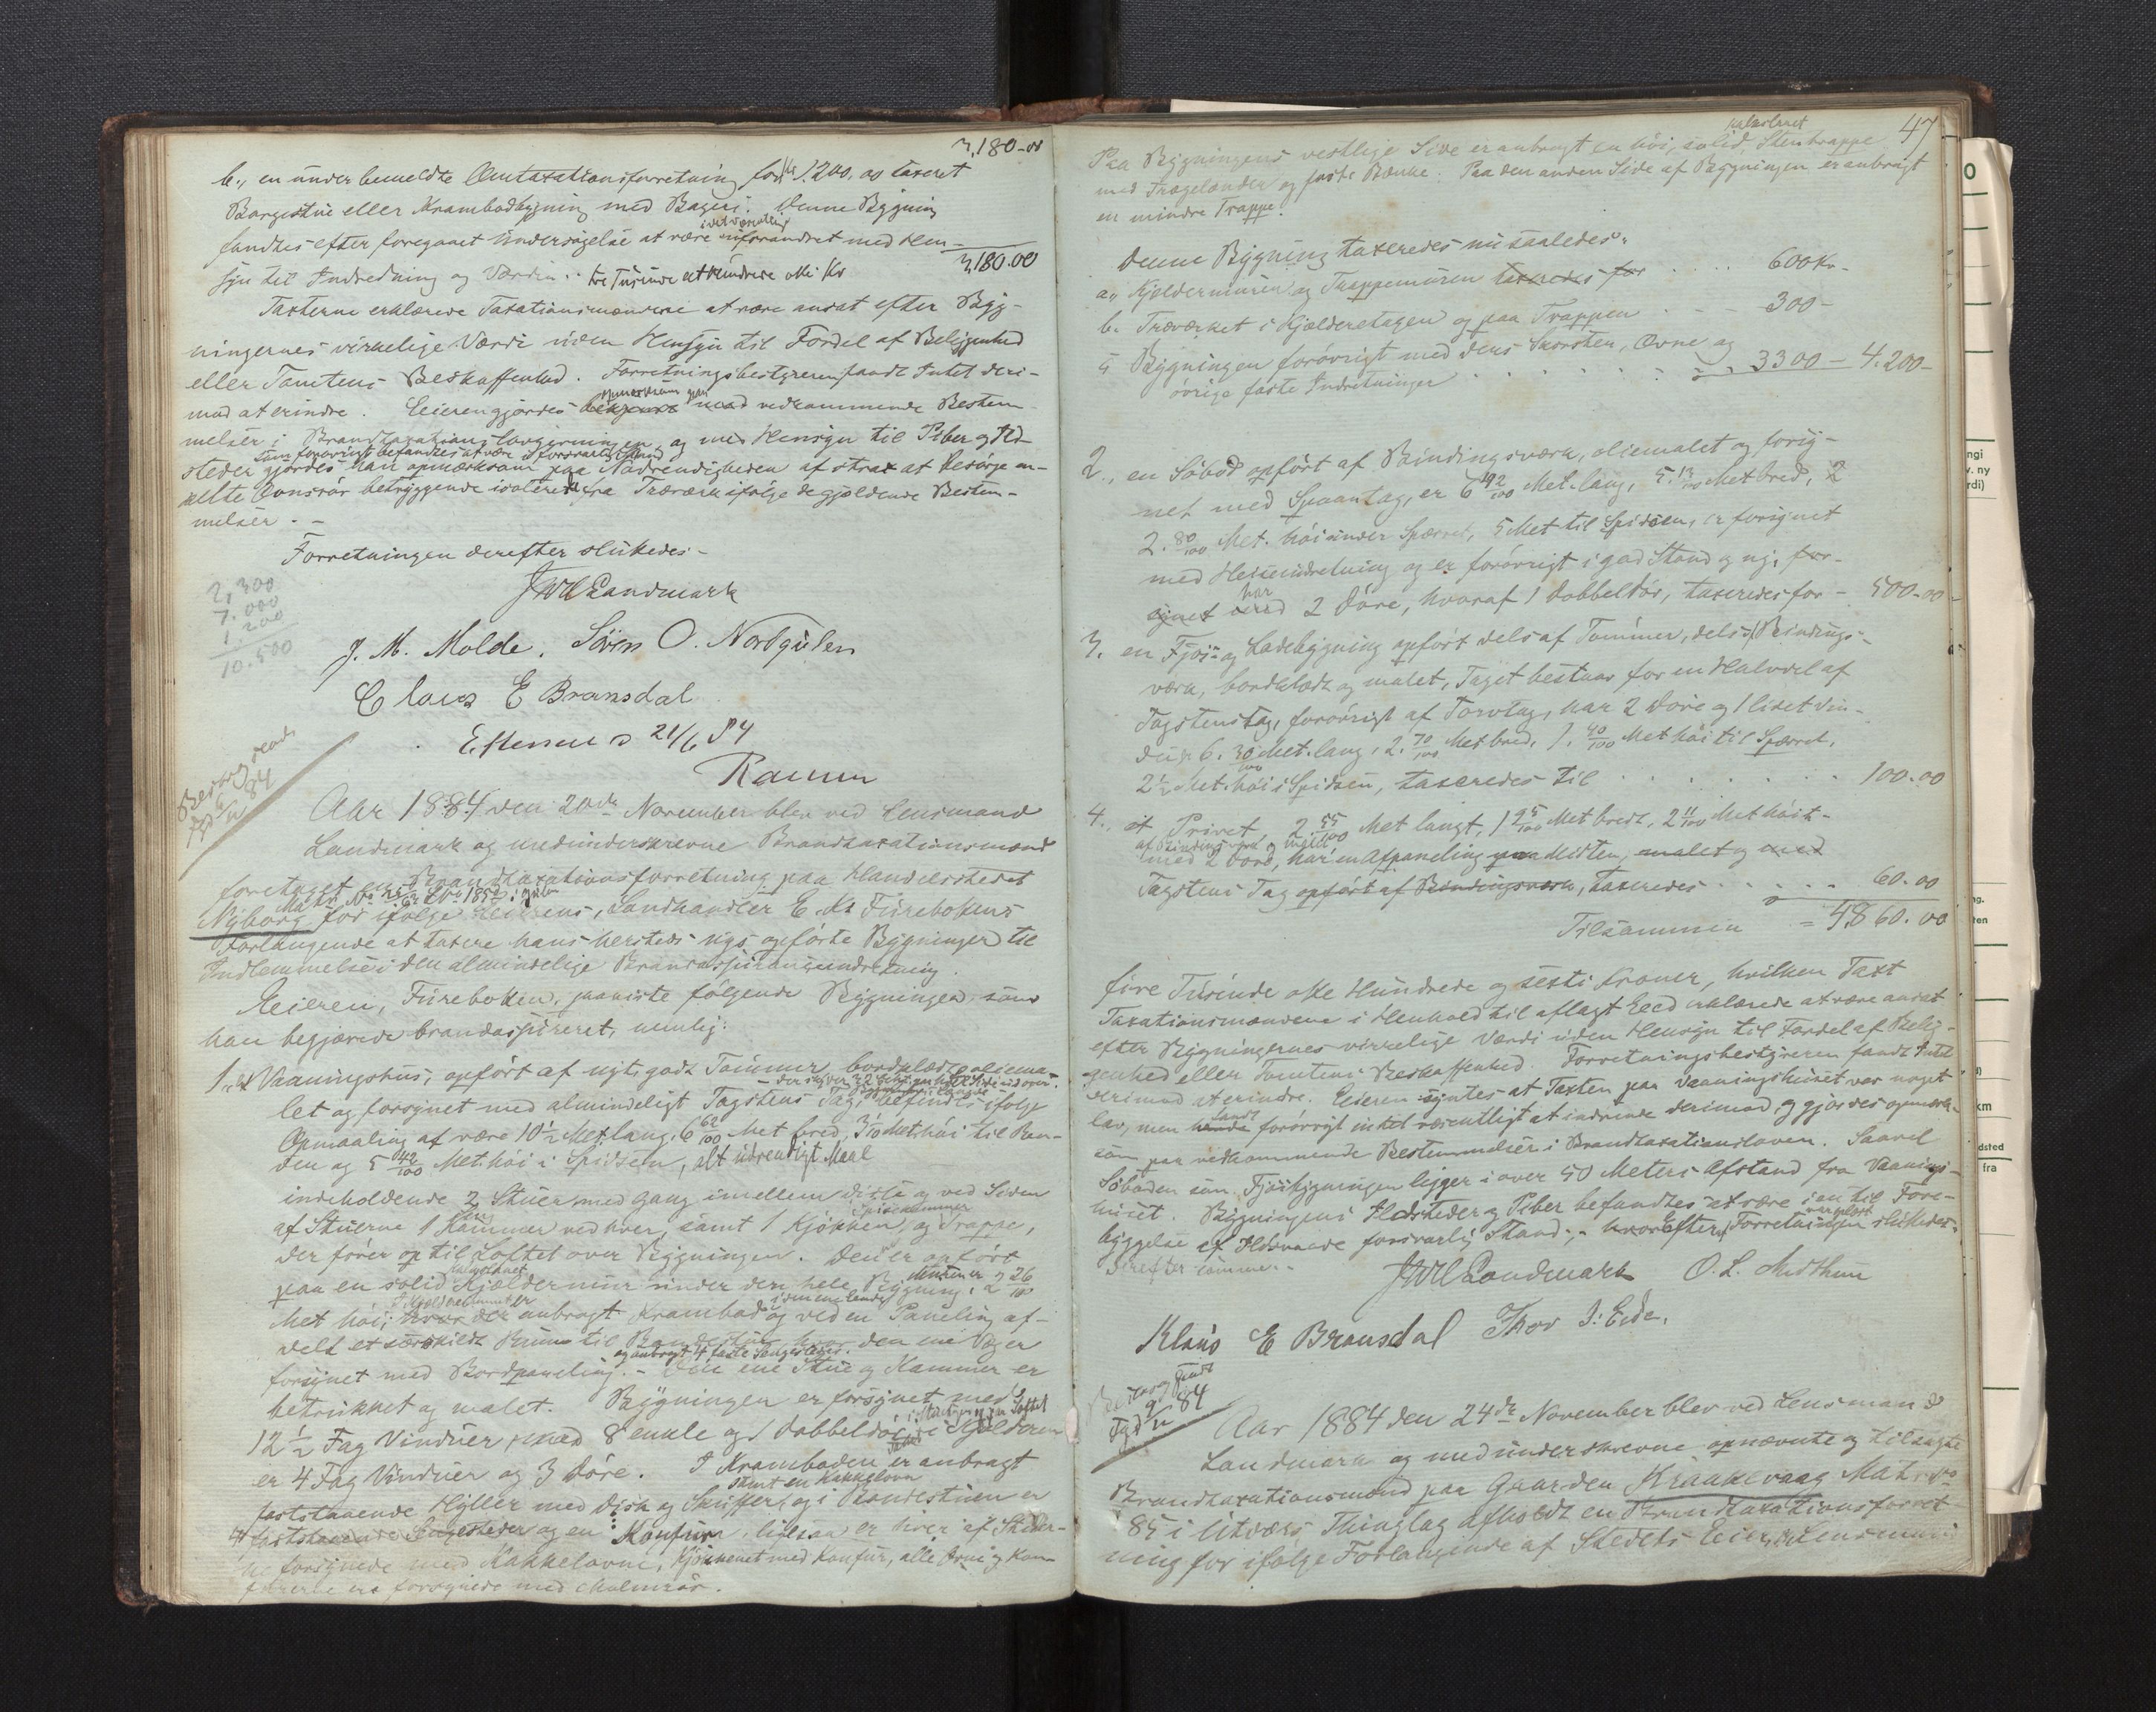 3,180-00
b., en under bemeldte Omtaxationsforretning for Kr 1.200,00 taxeret
Borgestue eller Krambodbygning med Bageri. Denne Bygning
fandtes efter foregaaet Undersøgelse at være i det væsentlig uforandret med Hen-
syn til Indredning og Værdien .. tre Tusinde et Hundrede otti Kr 3,180.00
Taxterne erklærede Taxationsmændene at være ansat efter Byg-
ningernes virkelige Værdi uden Hensyn til Fordel af Beliggenhed
eller Tomtens Beskaffenhed. Forretningsbestyreren fandt Intet deri-
mod at erindre. Eieren gjordes opmærksom paa vedkommende Bestem-
melser i Brandtaxationslovgivningen, og med Hensyn til Piber og Ild-
som forøvrigt befandtes at være i forsvarlig Stand
steder gjordes han opmærksom paa Nødvendigheden af strax at besørge en-
kelte Ovnsrør betryggende isoleret fra Træværk ifølge de gjældende Bestem-
melser. -
Forretningen derefter sluttedes -
JWLandmark
2,300
7.000
1.200
10.500
J. M. Molde. Søren O. Nordgulen
Claus E Bransdal
21/6 84
Aar 1884 den 20de November blev ved Lensmand
Landmark og medunderskrevne Brandtaxationsmænd
foretaget en Brandtaxationsforretning paa Handelsstedet
Nyborg for ifølge Eierens, Landhandler E. M. Furebottens
Forlangende at taxere hans hersteds nys opførte Bygninger til
Indlemmelse i den almindelige Brandassuranceindretning.
Eieren, Furebotten, paaviste følgende Bygninger, som
han begjærede brandassureret, nemlig:
1. et Vaaningshus, opført af nyt, godt Tømmer, bordklædt, oliema-
let og forsynet med almindeligt Tagstens Tag, befindes ifølge
Opmaaling at være 10 1/2 Met. lang, 6 62/100 Met bred, 3 1/10 Met. høi til Ran-
den og 5 42/100 Met. høi i Spidsen, alt udvendigt Maal
indeholdende 2 Stuer med Gang imellem disse og ved Siden
af Stuerne 1 Kammer ved hver, samt 1 Kjøkken, Spisekammer og Trappe,
der fører op til Loftet over Bygningen. Den er opført
paa en solid Kjældermur under den hele Bygning, Muren er 2 26/100
Met høi; I Kjælderrummet er anbragt Krambod i den ene Ende og ved en Paneling af-
delt et særskildt Rum til Bondestue, hvor den ene Væg er
forsynet med Bordpaneling. og anbragt 4 faste Sengesteder. - Den ene Stue og Kammer er
betrukket og malet. Bygningen er forsynet med
12 1/2 Fag Vinduer samt 8 enkle og 1 dobbeldør i Kjælderen
er 4 Fag Vinduer og 3 Døre. I Kramboden er anbragt
faststaaende Hyller med Disk og Skuffer samt en Kakkelovn, og i Bondestuen er
4 faststaaende Sengesteder og en Komfur, ligesaa er hver af Stuer-
ne forsynede med Kakkelovne, Kjøkkenet med Komfur, alle Ovne og Kom-
furerne er forsynede med Malmrør.
47
Paa Bygningens vestlige Side er anbragt en høi, solid, Stentrappe
med Trægelænder og faste Bænke. Paa den anden Side af Bygningen er anbragt
en mindre Trappe.
Denne Bygning taxeredes nu saaledes:
a., Kjældermuren og Trappemuren taxeredes for . . . . 600 Kr-
b. Træværket i Kjælderetagen og paa Trappen . . . 300-
c Bygningen forøvrigt med dens Skorsten, Ovne og
øvrige faste Indretninger . . . . . . . . 3300 - 4.200-
2., en Søbod opført af Bindingsværk, oliemalet og forsy-
net med Spaantag, er 6 92/100 Met. lang, 5 13/100 Met bred, 2
2. 80/100 Met. høi under Spærret, 5 Met til Spidsen, er forsynet
med Heiseindretning og er forøvrigt i god Stand og ny, for-
synet med har 2 Døre, hvoraf 1 Dobbeltdør, taxeredes for - 500-00
3. en Fjøs- og Ladebygning opført dels af Tømmer, dels af Bindings-
værk, bordklædt og malet, Taget bestaar for en Halvdel af
Tagstenstag, forøvrigt af Torvtag, har 2 Døre og 1 lidet Vin-
due 6. 30/100 Met. lang, 2. 70/100 Met bred, 1. 40/100 Met høi til Spærret,
2 1/2 Met. høi i Spidsen, taxeredes til . . . . . . . 100.00
4., et Privet, 2. 55/100 Met langt, 1 25/100 Met bredt, 2 11/100 Met høit-
af Bindingsværk og malet
med 2 Døre, har en Afpaneling paa Midten, malet og med
Tagstens Tag opført af Bindingsværk, taxeredes . . . . . 60.00
Tilsammen = 4860.00
fire Tusinde otte Hundrede og sexti Kroner, hvilken Taxt
Taxationsmændene i Henhold til aflagt Eed erklærede at være ansat
efter Bygningernes virkelige Værdi uden Hensyn til Fordel af Belig-
genhed eller Tomtens Beskaffenhed. Forretningsbestyreren fandt Intet
derimod at erindre. Eieren syntes at Taxten paa Vaaningshuset var noget
lav, men havde fandt forøvrigt intet væsentligt at indvende derimod og gjordes opmærk-
som paa vedkommende Bestemmelser i Brandtaxationsloven. Saavel
Søboden som Fjøsbygningen ligger i over 50 Meters Afstand fra Vaanings-
huset. Bygningens Ildsteder og Piber befandtes at være i en til Fore-
byggelse af Ildsvaade forsvarlig Stand; - hvorEfter Forretningen sluttedes.
JWLandmark O. L. Midthun
Klaus E Bransdal Thor I. Eide.
Aar 1884 den 24de November blev ved Lensmand
Landmark og medunderskrevne opnævnte og tilsagte
Brandtaxationsmænd paa Gaarden Kraakevaag Matr. No
85 i Utvær Thinglag afholdt en Brandtaxationsforret-
ning for ifølge Forlangende af Stedets Eier, Lensmand